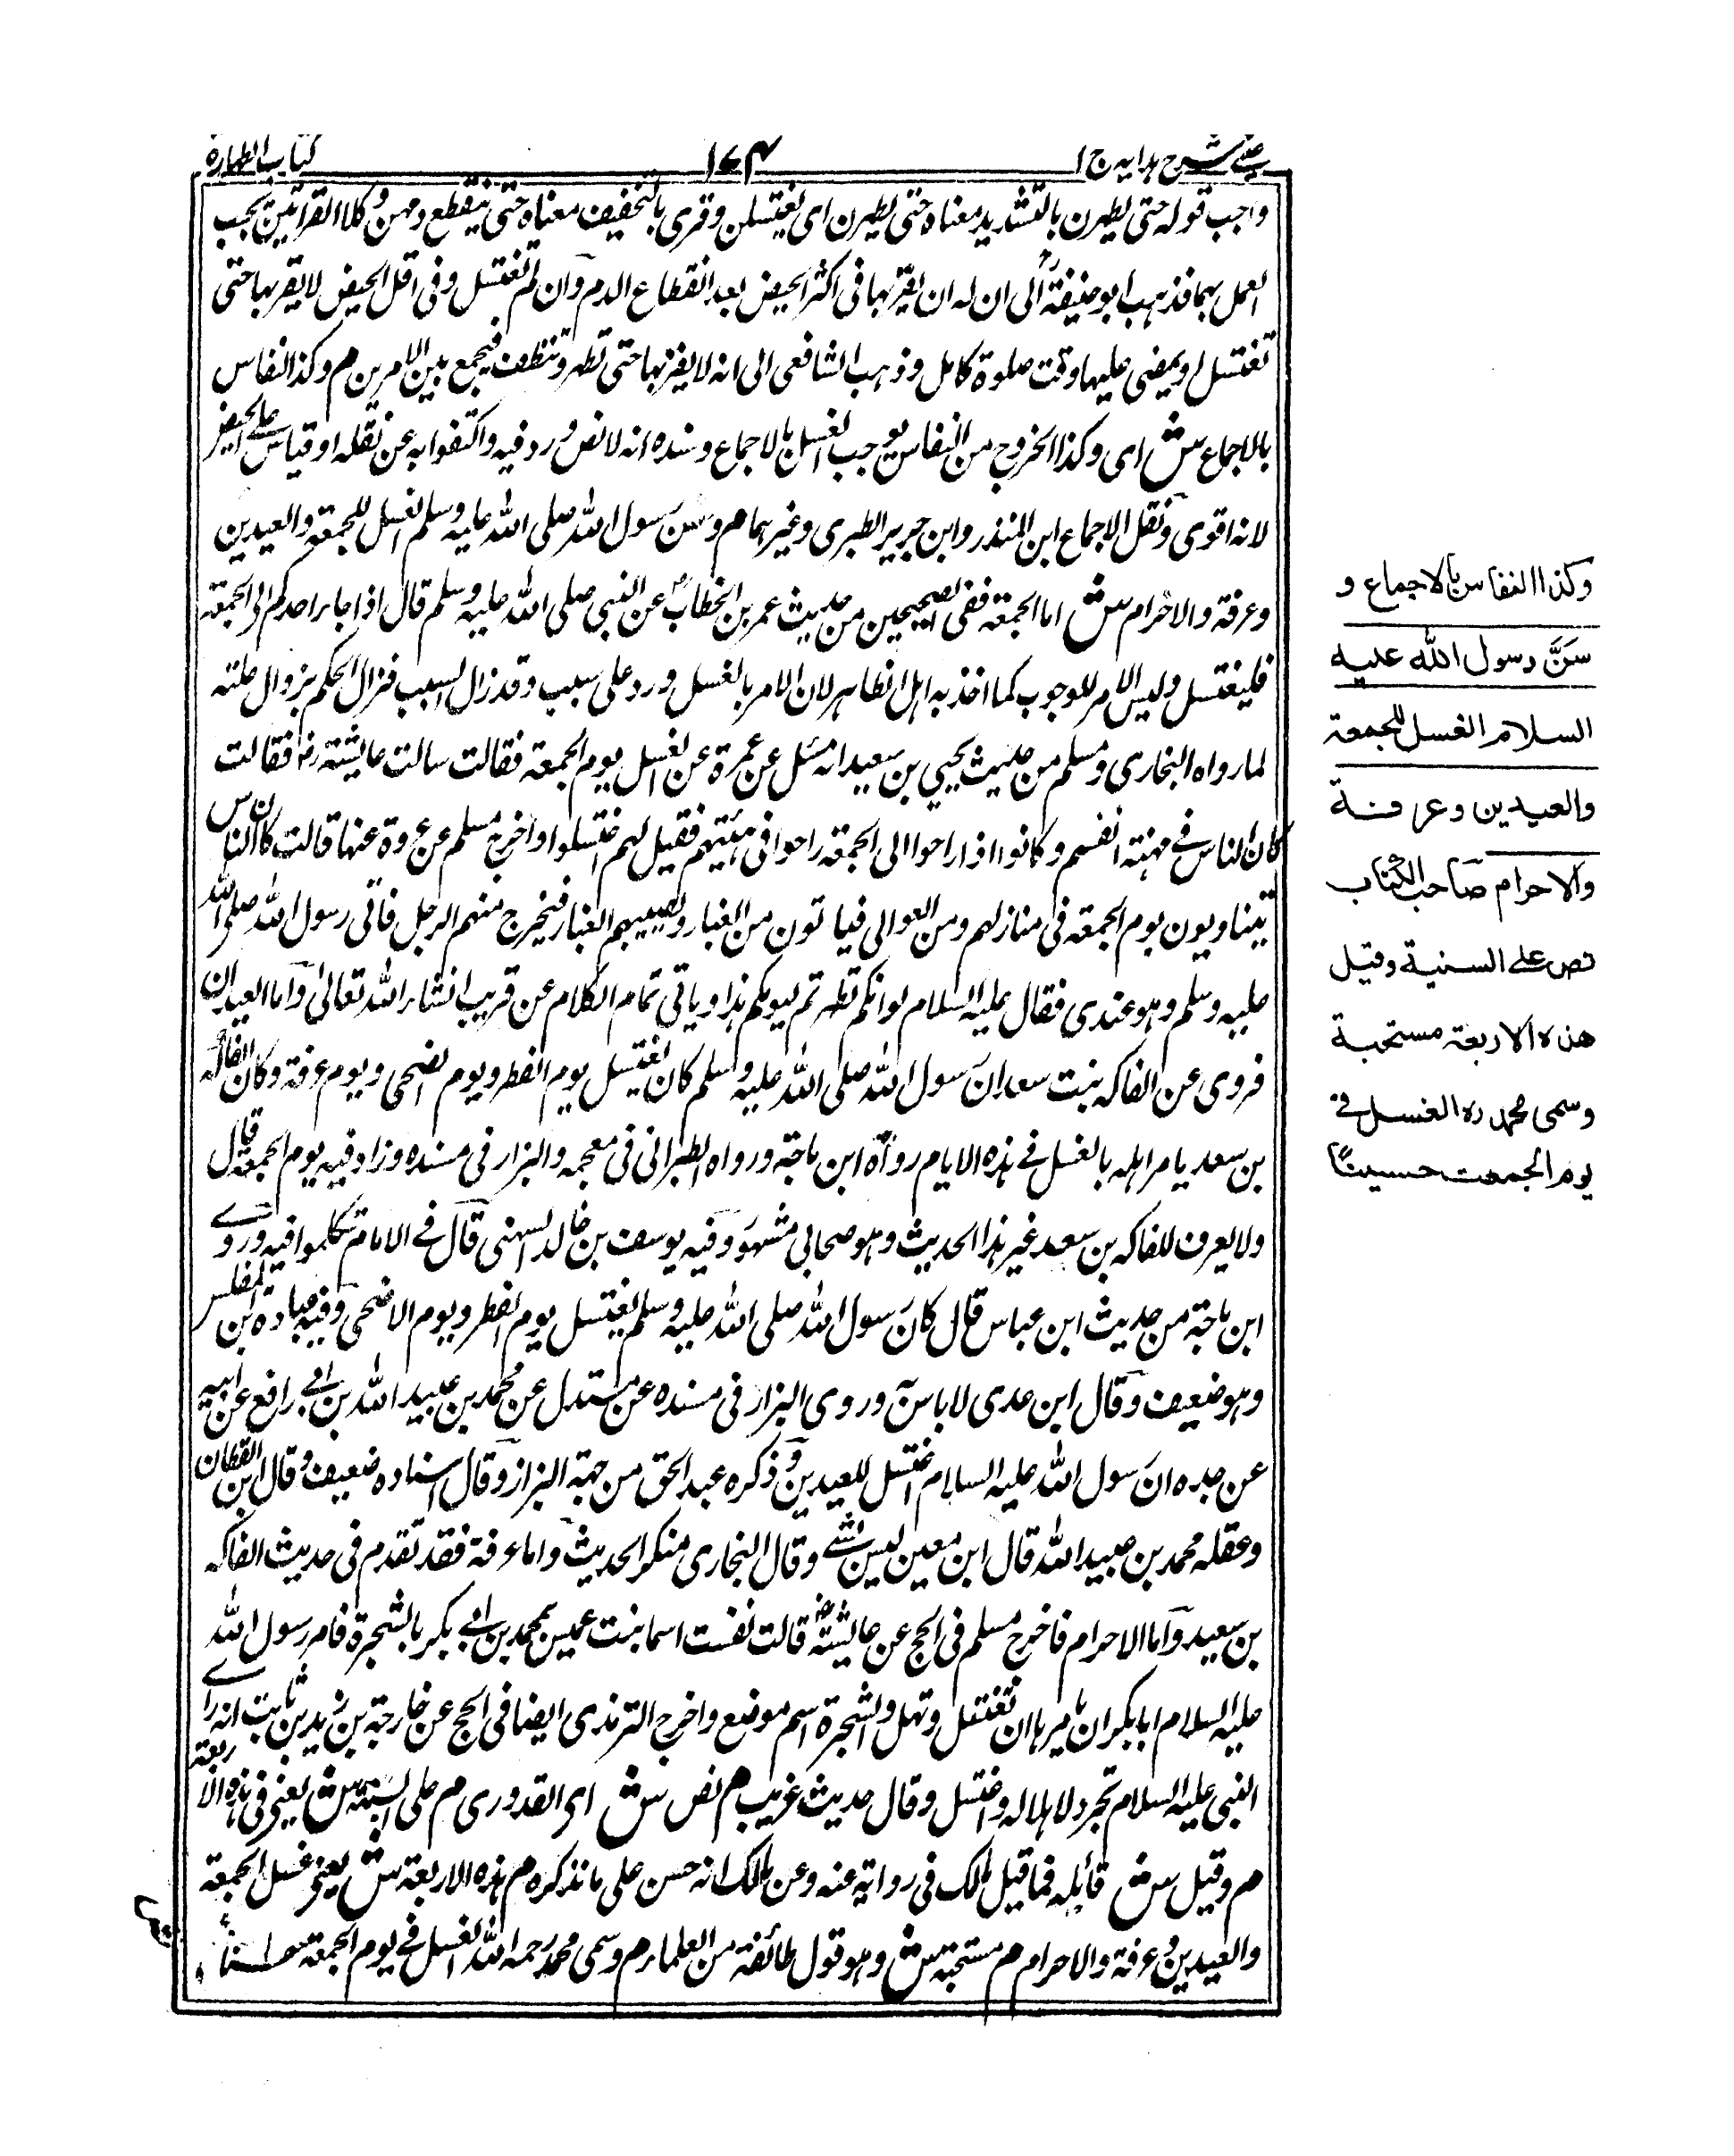 عینی شرح ہدایہ ج ١
١٧٤
کتاب الطہارۃ
واجب قولہ حتی یطہرن بالتشدید معناہ حتی یطہرن ای یغتسلن وقری بالتخفیف معناہ حتی ینقطع دمہن وکلا القرائتین یجب
العمل بہما فذہب ابو حنیفۃ رح الی ان لہ ان یقربہا فی اکثر الحیض بعد انقطاع الدم وان لم تغتسل وفی اقل الحیض لا یقربہا حتی
تغتسل او یمضی علیہا وقت صلوۃ کامل وذہب الشافعی الی انہ لا یقربہا حتی تطہر وتنظف فیجمع بین الامرین م وکذا النفاس
بالاجماع ش ای وکذا الخروج من النفاس یوجب الغسل بالاجماع وسندہ انہ لا نص ورد فیہ واکتفوا بہ عن نقلہ او قیاس علی الحیض
لانہ اقوی ونقل الاجماع ابن المنذر وابن جریر الطبری وغیرہما م وسن رسول اللہ صلی اللہ علیہ وسلم الغسل للجمعۃ والعیدین
وعرفۃ والاحرام ش اما الجمعۃ ففی الصحیحین من حدیث عمر بن الخطاب رض عن النبی صلی اللہ علیہ وسلم قال اذا جاء احدکم الی الجمعۃ
فلیغتسل ولیس الامر للوجوب کما اخذ بہ اہل الظاہر لان الامر بالغسل ورد علی سبب وقد زال السبب فزال الحکم بزوال علتہ
لما رواہ البخاری ومسلم من حدیث یحیی بن سعید انہ سئل عن عمرۃ عن الغسل یوم الجمعۃ فقالت سالت عایشۃ رض فقالت
کان الناس فے مہنۃ انفسہم وکانوا اذا راحوا الی الجمعۃ راحوا فی ہئیتہم فقیل لہم اغتسلوا واخرج مسلم عن عروۃ عنہا قالت کان الناس
یتناوبون یوم الجمعۃ فی منازلہم ومن العوالی فیاتون من الغبار ویصیبہم الغبار فیخرج منہم الرجل فاتی رسول اللہ صلی اللہ
علیہ وسلم وہو عندی فقال علیہ السلام لو انکم تطہرتم لیومکم ہذا ویاتی تمام الکلام عن قریب انشاء اللہ تعالی واما العیدان
فروی عن الفاکہ بنت سعد ان رسول اللہ صلی اللہ علیہ وسلم کان یغتسل یوم الفطر ویوم الضحی ویوم عرفۃ وکان الفاکہ
بن سعد یامر اہلہ بالغسل فے ہذہ الایام رواہ ابن ماجۃ ورواہ الطبرانی فی معجمہ والبزار فی مسندہ وزاد فیہ یوم الجمعۃ قال
ولا یعرف للفاکہ بن سعد غیر ہذا الحدیث وہو صحابی مشہور وفیہ یوسف بن خالد السہتی قال فے الامام تکلموا فیہ وروے
ابن ماجۃ من حدیث ابن عباس قال کان رسول اللہ صلی اللہ علیہ وسلم یغتسل یوم الفطر ویوم الاضحی وفیہ جبادۃ ابن المفلس
وہو ضعیف وقال ابن عدی لا باس بہ وروی البزار فی مسندہ عن مندل عن محمد بن عبید اللہ بن ابے رافع عن ابیہ
عن جدہ ان رسول اللہ علیہ السلام اغتسل للعیدین وذکرہ عبد الحق من جہۃ البزار وقال اسنادہ ضعیف وقال ابن القطان
وعقلہ محمد بن عبید اللہ قال ابن معین لیس بشے وقال البخاری منکر الحدیث واما عرفۃ فقد تقدم فی حدیث الفاکہ
بن سعید واما الاحرام فاخرج مسلم فی الحج عن عایشۃ رض قالت نفست اسما بنت عمیس بمحمد بن ابے بکر بالشجرۃ فامر رسول اللہ
علیہ السلام ابا بکر ان یامرہا ان تغتسل وتہل والشجرۃ اسم موضع واخرج الترمذی ایضا فی الحج عن خارجۃ بن زید بن ثابت انہ رای
النبی علیہ السلام تجرد لاہلالہ واغتسل وقال حدیث غریب م نص ش ای القدوری م علی السنیۃ ش یعنی فی ہذہ الاربعۃ
م وقیل ش قائلہ فما قیل مالک فی روایۃ عنہ وعن مالک انہ حسن علی ما نذکرہ م ہذہ الاربعۃ ش یعنی غسل الجمعۃ
والعیدین وعرفۃ والاحرام م مستحبۃ ش وہو قول طائفۃ من العلماء م وسمی محمد رحمہ اللہ الغسل فے یوم الجمعۃ حسنا
وکذا النفاس بالاجماع و
سَنَّ رسول الله علیه
السلام الغسل للجمعة
والعیدین وعرفة
والاحرام صاحب الکتاب
نص علی السنیة وقیل
هذه الاربعة مستحبة
وسمی محمد رہ الغسل فے
یوم الجمعت حسینًا